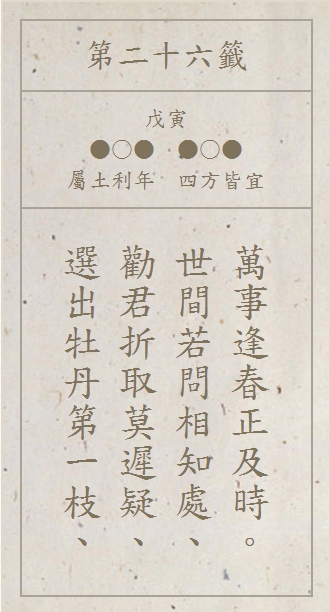 第二十六籤
戊寅
●○● ●○●
屬土利年 四方皆宜
選出牡丹第一枝、
勸君折取莫遲疑、
世間若問相知處、
萬事逢春正及時。